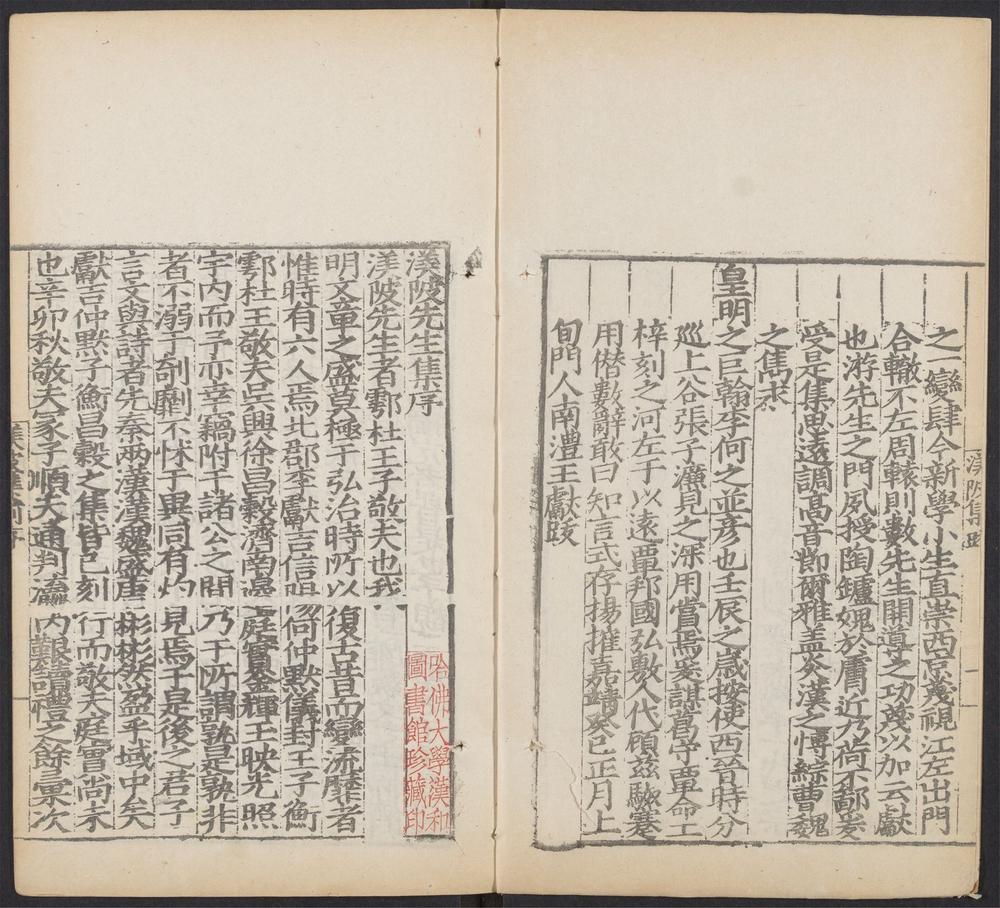 之一變肆今新學小生直崇西京蔑視江左出門
合轍不左周轅則數先生開導之功茂以加云獻
也游先生之門夙授陶鑪媿於庸近乃荷不鄙爰
受是集思遠調高音節爾雅蓋炎漢之博綜曹魏
之雋永
皇明之巨翰李何之並彥也壬辰之歲按使西晉時分
巡上谷張子瀍見之深用嘗焉爰謀葛守覃命工
梓刻之河左于以遠覃邦國弘敷人代頋茲駑蹇
用僣數辭敢曰知言式存揚搉嘉靖癸巳正月上
旬門人南澧王獻跋
渼陂集
渼陂先生集序
渼陂先生者鄠杜王子敬夫也我
明文章之盛莫極于弘治時所以復古昔而變流靡者
惟時有六人焉北郡李獻吉信陽何仲默儀封王子衡
鄠杜王敬夫吳興徐昌穀濟南邊庭實金輝玉映光照
宇内而予亦幸竊附于諸公之間乃于所謂孰是孰非
者不溺于剖劘不怵于異同有灼見焉于是後之君子
言文與詩者先秦兩漢漢魏盛唐彬彬然盈乎域中矣
獻吉仲默子衡昌穀之集皆已刻行而敬夫庭實尚未
也辛卯秋敬夫冡子順夫通判瀛内艱讀禮之餘彙次
哈佛大學漢和
圖書館珍藏印